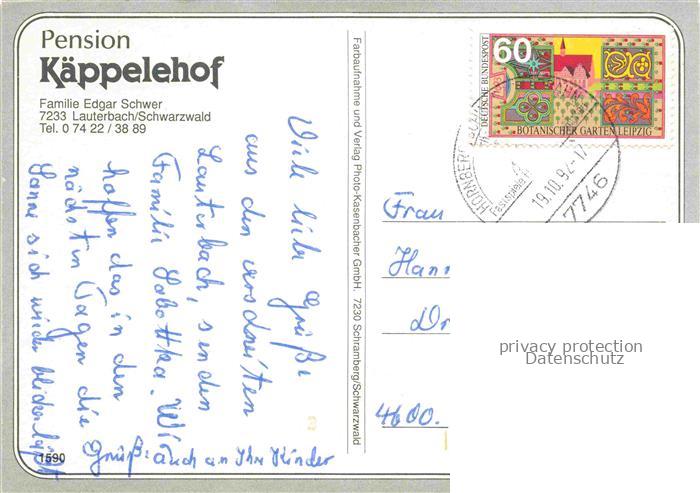 Pension
Käppelehof
Familie Edgar Schwer
7233 Lauterbach/Schwarzwald
Tel. 0 74 22 / 38 89
Viele liebe Grüße
aus den verschneiten
Lauterbach, senden
Familie Sobottka. Wir
hoffen das in den
nächsten Tagen die
Sonne sich wieder blicken läßt
Grüß: auch an Ihre Kinder
1590
Farbaufnahme und Verlag Photo-Kasenbacher GmbH. 7230 Schramberg/Schwarzwald
60
DEUTSCHE BUNDESPOST
BOTANISCHER GARTEN LEIPZIG
HORNBERG
19.10.92-17
7746
Frau
Hann
Dr
4600.
privacy protection
Datenschutz